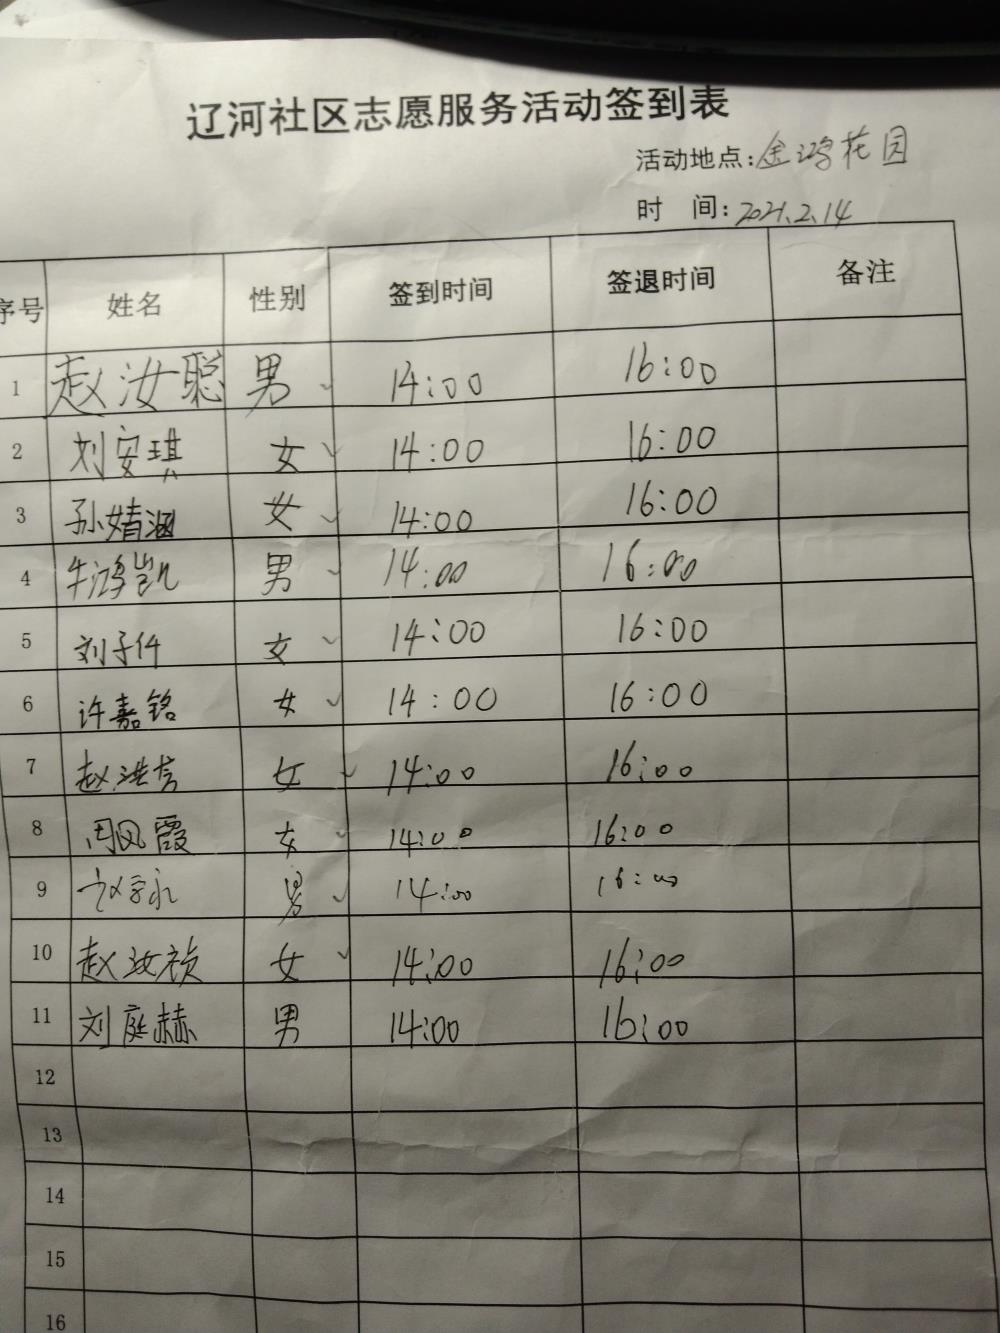 辽河社区志愿服务活动签到表
活动地点:金鸿花园
时 间:2021.2.14
序号 姓名 性别 签到时间 签退时间 备注
1 赵汝聪 男 ✓ 14:00 16:00
2 刘安琪 女 ✓ 14:00 16:00
3 孙婧涵 女 ✓ 14:00 16:00
4 牛鸿凯 男 ✓ 14:00 16:00
5 刘子仟 女 ✓ 14:00 16:00
6 许嘉铭 女 ✓ 14:00 16:00
7 赵洪言 女 ✓ 14:00 16:00
8 周凤霞 女 ✓ 14:00 16:00
9 男 ✓ 14:00 16:00
10 赵汝祯 女 ✓ 14:00 16:00
11 刘庭赫 男 14:00 16:00
12
13
14
15
16